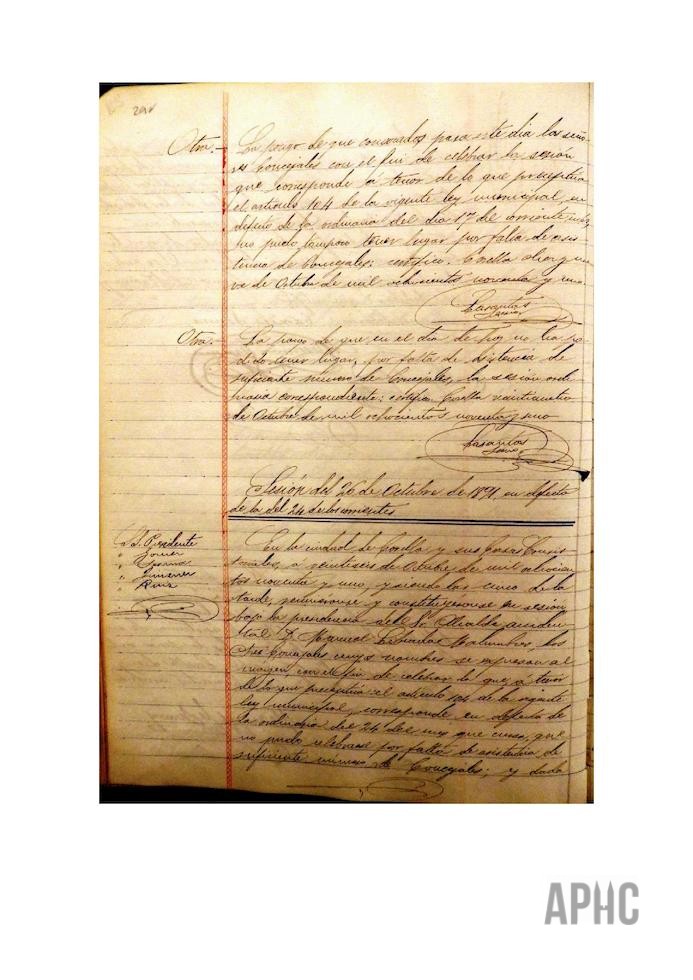 29v
Otra.- La pongo de que convocados para este dia los seño-
res Concejales con el fin de celebrar la sesión
que corresponde á tenor de lo que preceptúa
el artículo 104 de la vigente ley municipal, en
defecto de la ordinaria del dia 17 del corriente mes,
no pudo tampoco tener lugar por falta de asis-
tencia de Concejales: certifico. Corella diez y nue-
ve de Octubre de mil ochocientos noventa y uno.
Casantos
Otra.- La pongo de que en el dia de hoy no ha po-
dido tener lugar, por falta de asistencia de
suficiente número de Concejales, la sesión ordi-
naria correspondiente: certifico. Corella veinticuatro
de Octubre de mil ochocientos noventa y uno
Casantos
Sesión del 26 de Octubre de 1891, en defecto
de la del 24 de los corrientes
S. Presidente
" Jimenez
" Ruiz
En la ciudad de Corella y sus Casas Consis-
toriales, a veintiseis de Octubre de mil ochocien-
tos noventa y uno, y siendo las cinco de la
tarde, reunieronse y constituyéronse en sesión
bajo la presidencia del Sr. Alcalde acciden-
tal D. Manuel los
Sres Concejales cuyos nombres se expresan al
margen, con el fin de celebrar la que á tenor
de lo que preceptúa el artículo 104 de la vigente
ley municipal, corresponde en defecto de
la ordinaria del 24 del mes que cursa, que
no pudo celebrarse por falta de asistencia de
suficiente número de Concejales; y dada
APHC